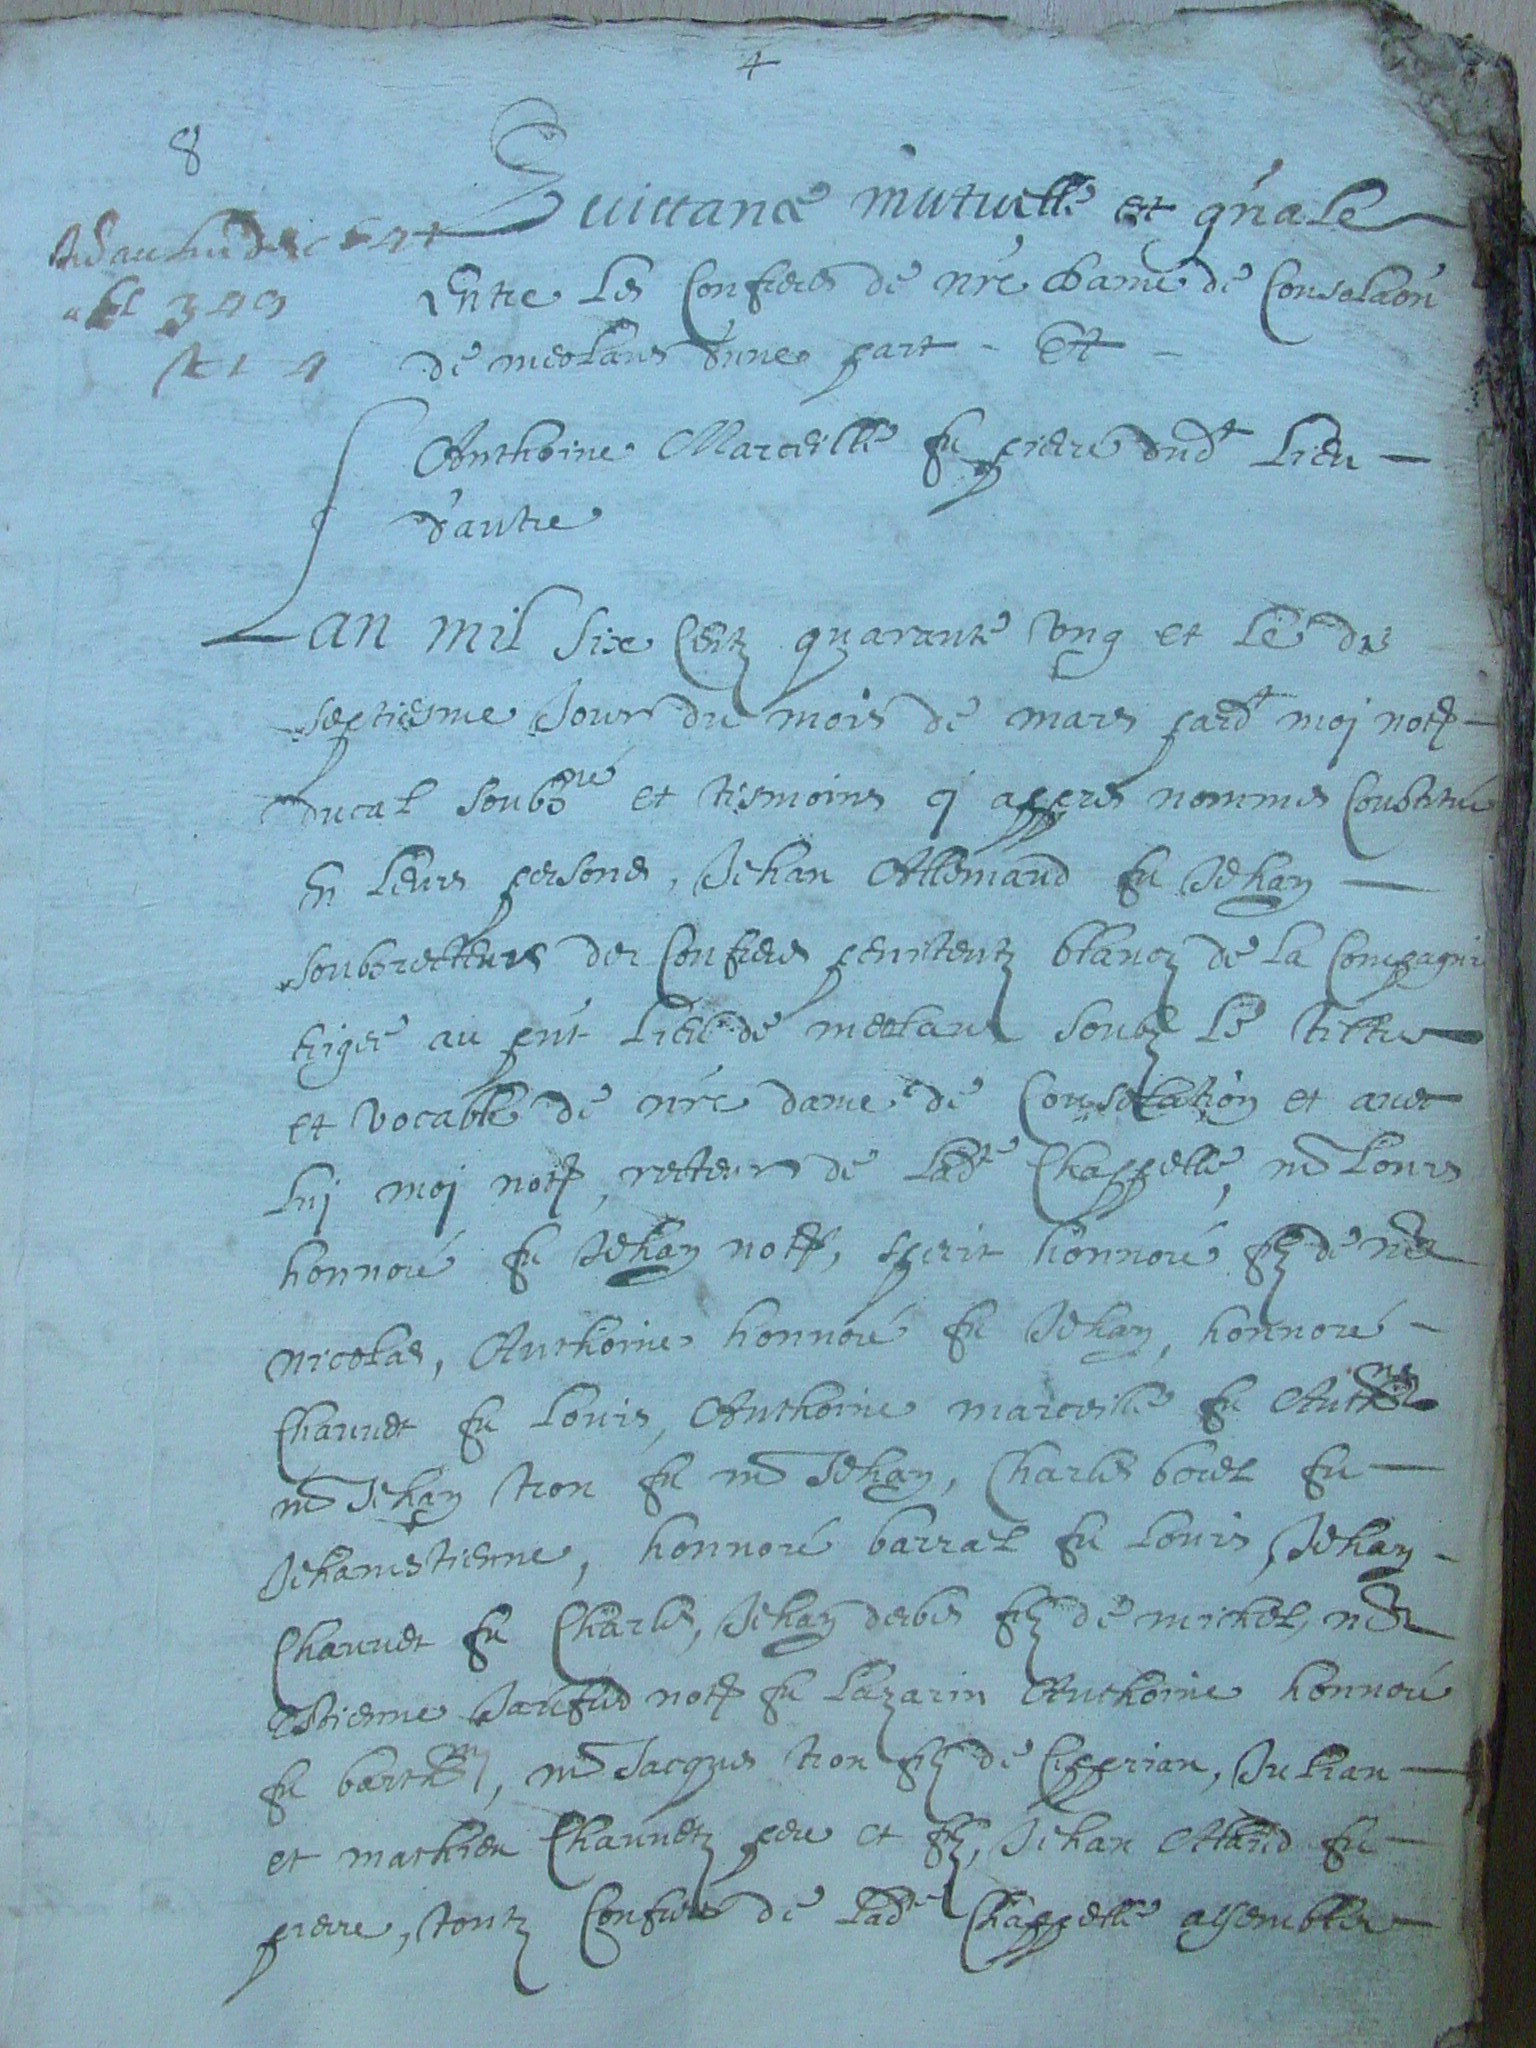 4
8
Quittance mutuelle et gñale
Entre les Confreres de nře dame de Consolaõn
de meolans d'une part - Et -
Anthoine Marceille fu pierre dud^t lieu -
d'autre
L'an mil six Centz quarante ung et le dix
septiesme Jour du mois de mars pard^t moj not^e
ducal soubz^né et tesmoins cj appres nommes Constitué
En leurs persones, Jehan Allemand fu Jehan -
soubzrecteurs des Confreres penitentz blancz de la Compagnie
erigée au pñt lieu de meolans soubz le tiltre
et vocable de nře dame de Consolation et avec
luj moj not^e, recteurs de lad^e Chappelle, m^e Louis
honnoré fu Jehan not^e, sperit honnoré filz de m^e
nicolas, Anthoine honnoré fu Jehan, honnoré -
Chauvet fu Louis, Anthoine marceille fu Anth^ne
m^e Jehan tron fu m^e Jehan, Charles fu -
Jehanestienne, honnoré barral fu Louis, Jehan -
Chauvet fu Charles, Jehan derbes filz de michel, m^e
Estienne not^e fu Lazarin Anthoine honnoré
fu barth^my, m^e Jacques tron filz de Ciprian, Julian -
et mathieu Chauvetz pere et filz, Jehan fu -
pierre, toutz Confreres de lad^e Chappelle assemblés -